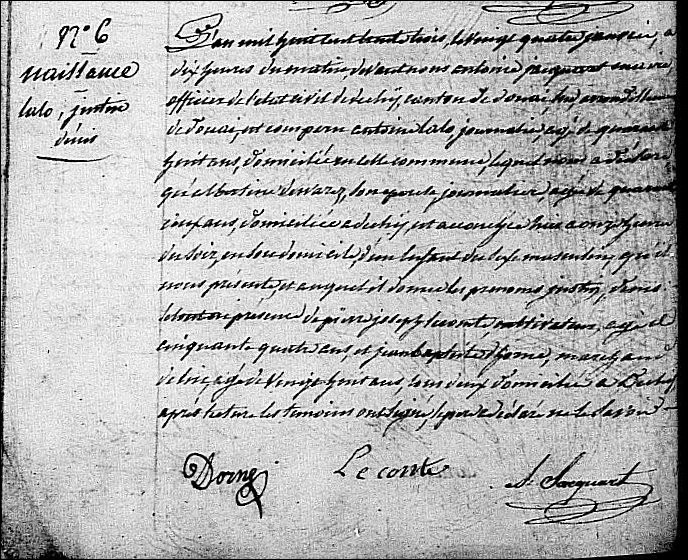 N° 6
naissance
lalo, justin
denis
L'an mil huit cent trente trois, le vingt quatre janvier, a
dix heures du matin devant nous antoine jacquart maire
officier de l'etat civil de dechy, canton de douai, arrondissem
de douai, est comparu antoine lalo journalier, agé de quarante
huit ans, domicilié en cette commune, lequel nous a déclaré
qu'albertine son epouse journaliere, agée de quarante
ans, domiciliée a dechy, est accouchée hier a onze heures
du soir, en son domicile, d'un enfant du sexe masculin, qu'il
nous présente, et auquel il donne les prenoms justin, denis
le tout en présence de pierre joseph lecomte, cultivateur, agé de
cinquante quatre ans et jean baptiste dorne, marchand
de lin, agé de vingt huit ans, tous deux domicilié a Dechy
après lecture les temoins ont signé, le pere a déclaré ne le savoir
Dorne
Le comte
A. Jacquart